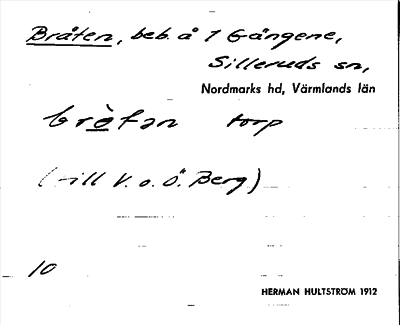 Bråten, beb. å 1 Gångene,
Silleruds sn,
Nordmarks hd, Värmlands län
bròtan torp
(till V. o. Ö. Berg)
10
HERMAN HULTSTRÖM 1912